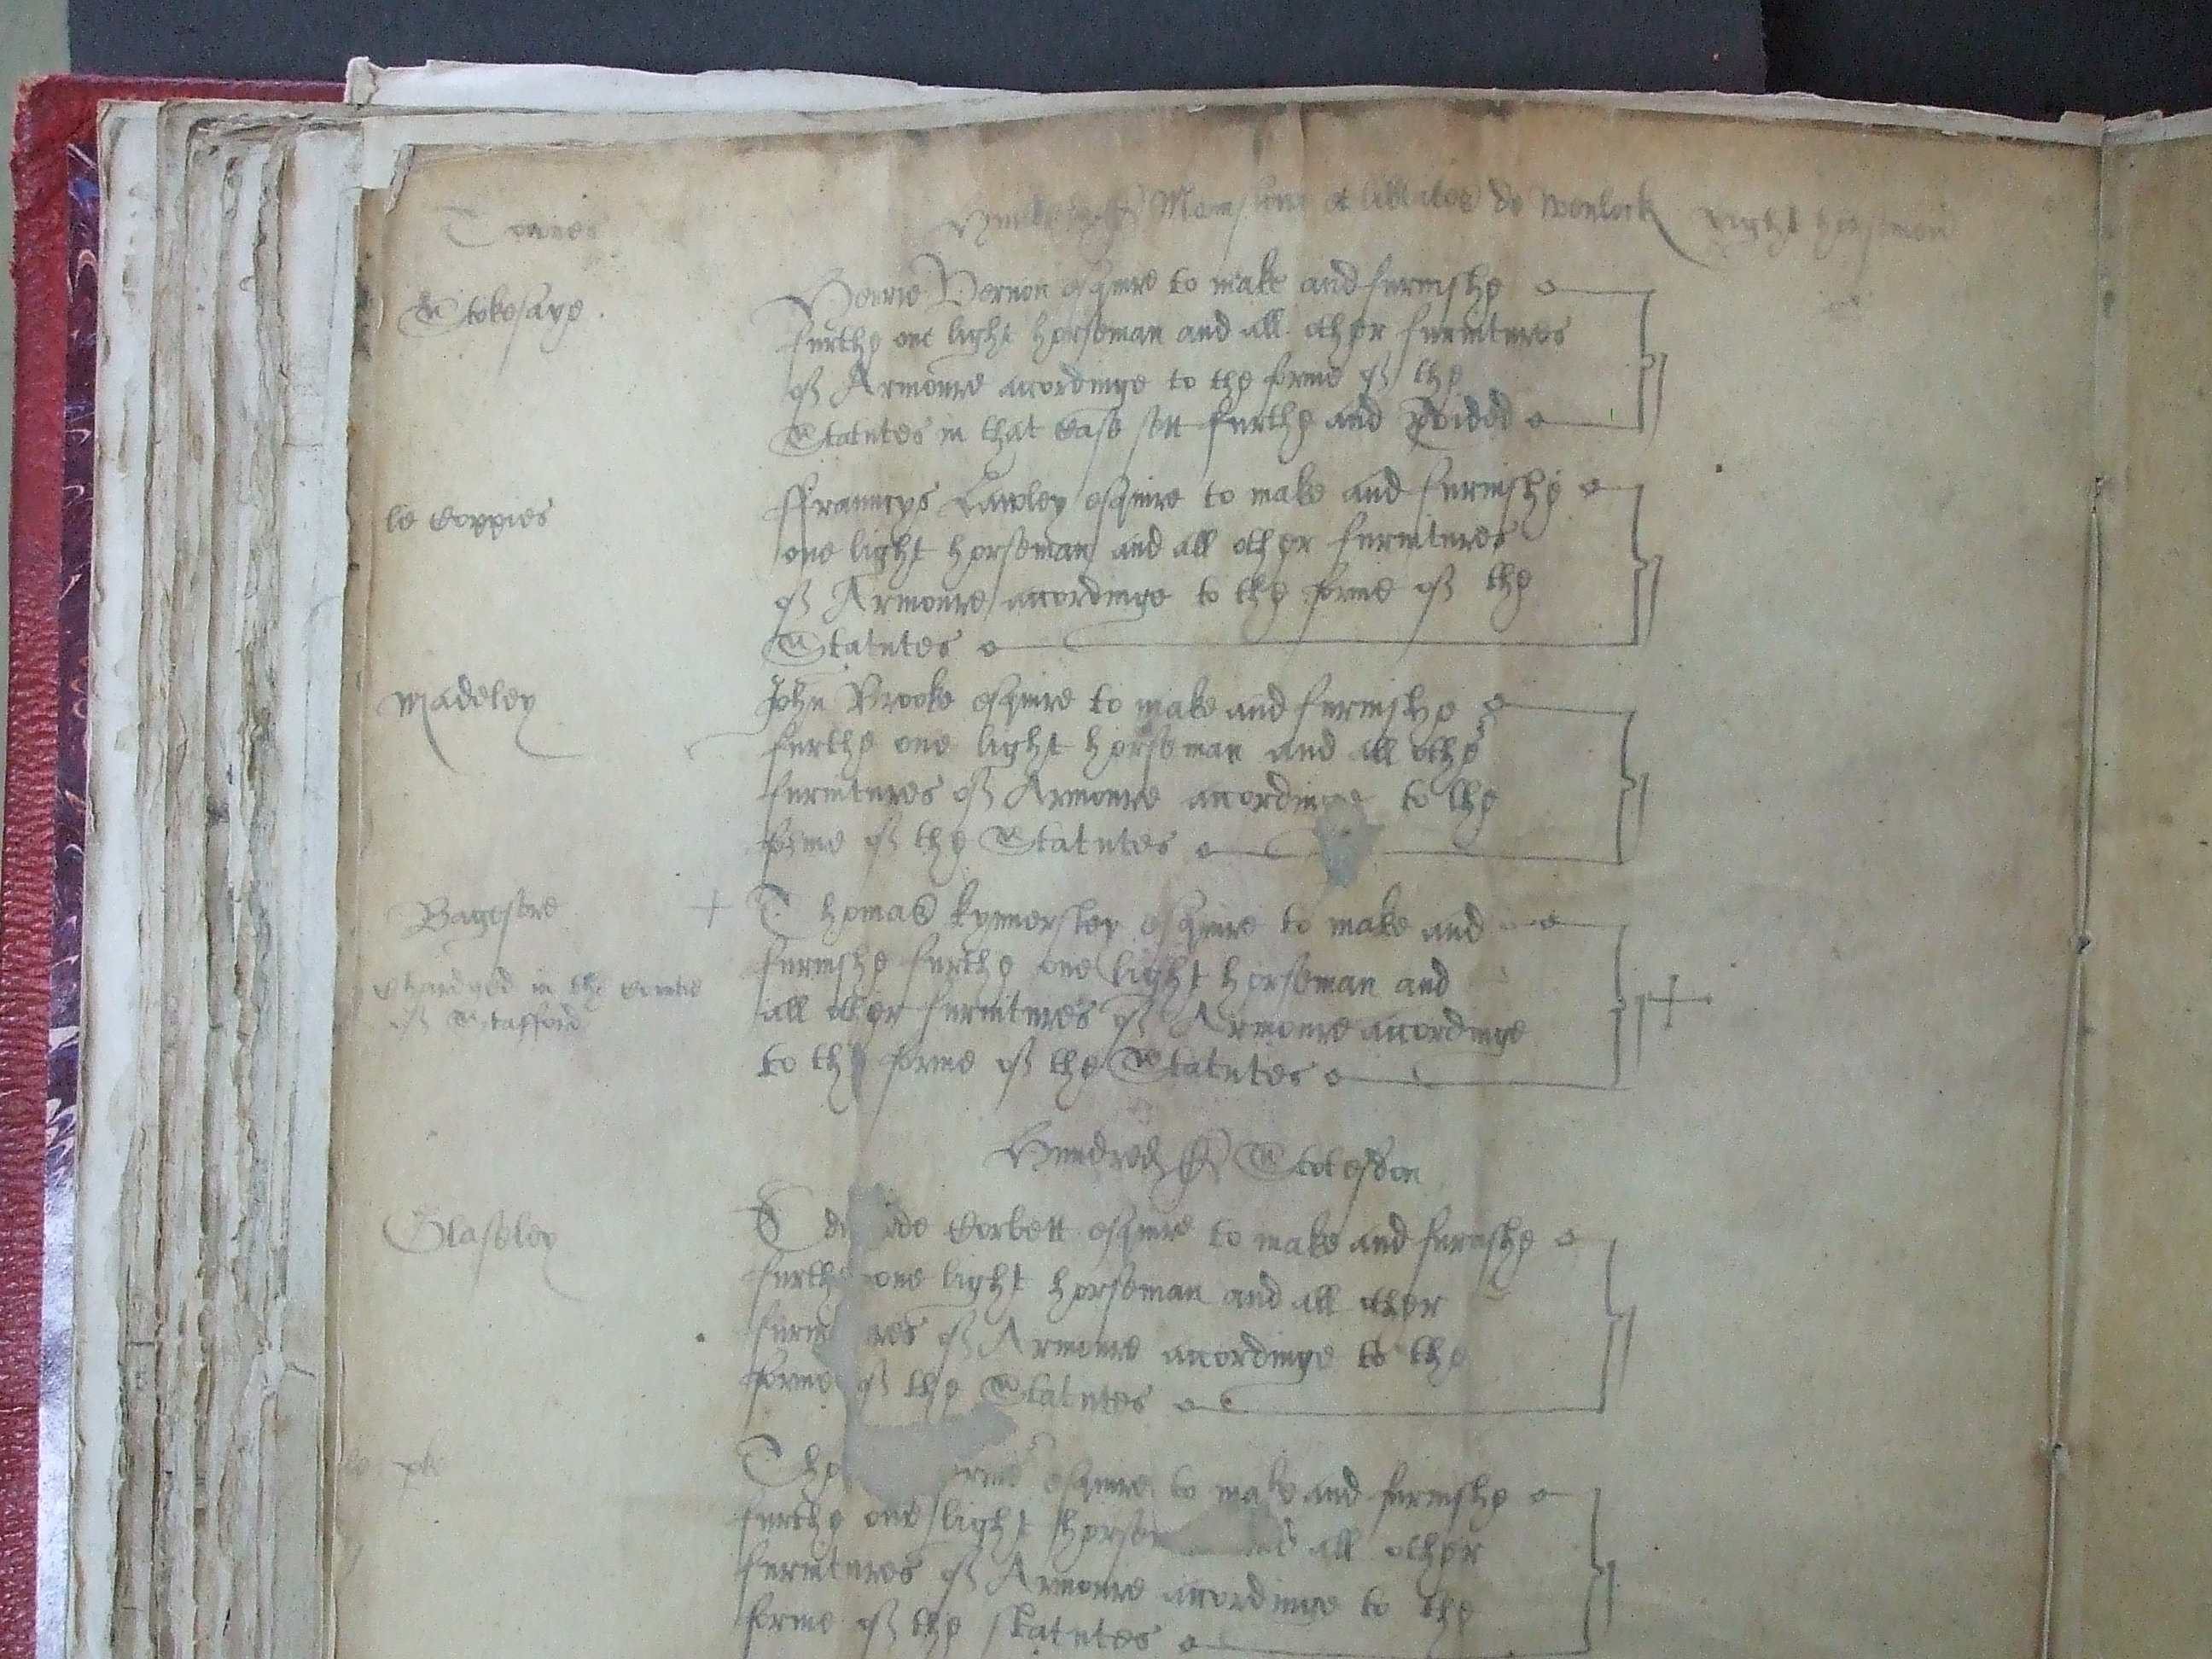 Townes
Hundred de Munslowe et libtates de Wenlock Light horsmen
Stokesaye
Henrie Vernon esquire to make and furnishe
furthe one light horseman and all other furnitures
of Armoure accordinge to the forme of the
Statutes in that case sett furthe and
le Coppies
ffranncys Lawley esquire to make and furnishe
one light horseman and all other furnitures
of Armoure accordinge to the forme of the
Statutes
Madeley
John Brooke esquire to make and furnishe
furthe one light horseman and all other
furnitures of Armoure accordinge to the
forme of the Statutes
Bagesore
+ Thomas kynnersley esquire to make and
furnishe furthe one light horseman and
all other furnitures of Armoure accordinge +
to the forme of the Statutes
Chardged in the Countie
of Stafford
Hundred de Stotesdon
Glaseley
corbett esquire to make and furnishe
furthe one light horseman and all other
furnitures of Armoure accordinge to the
forme of the Statutes
esquire to make and furnishe
furthe one light all other
furnitures of Armoure accordinge to the
forme of the statutes